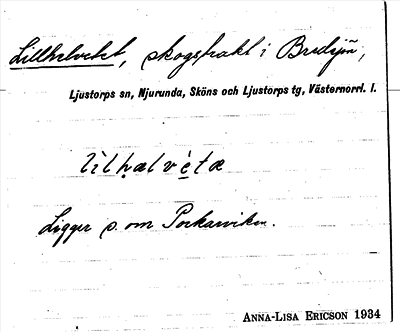 Lillhelvetet, skogstrakt i Bredsjön,
Ljustorps sn, Njurunda, Sköns och Ljustorps tg, Västernorrl. l.
lìlhælvè̩tæ
Ligger s. om Porkarviken.
ANNA-LISA ERICSON 1934